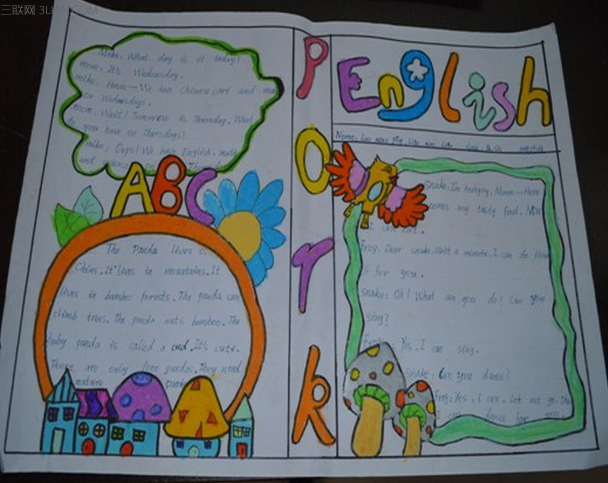 三联网 3LIAN.COM
Mike: What day is it today?
Mom: It's Wednesday.
Mike: We have Chinese, art and
on Wednesdays.
Mom: Wait! Tomorrow is Thursday. What
do you have on Thursdays?
Mike: Oops! We have English, math
and
ABC
The Panda lives in
China. It lives in mountains. It
lives in bamboo forests. The panda can
climb trees. The panda eats bamboo. The
baby panda is called a cud. It's cute.
There are only 1000 pandas. They need
Pork
English
Name:
Snake: I'm hungry. Mmm—Here
comes my tasty food. Mr
I can eat.
Frog: Dear snake. Wait a momete. I can do
for you.
Snake: Oh! What can you do? Can you
sing?
Yes, I can sing.
Snake: Can you dance?
Frog: Yes, I can. Let me go. The
I can dance for you.